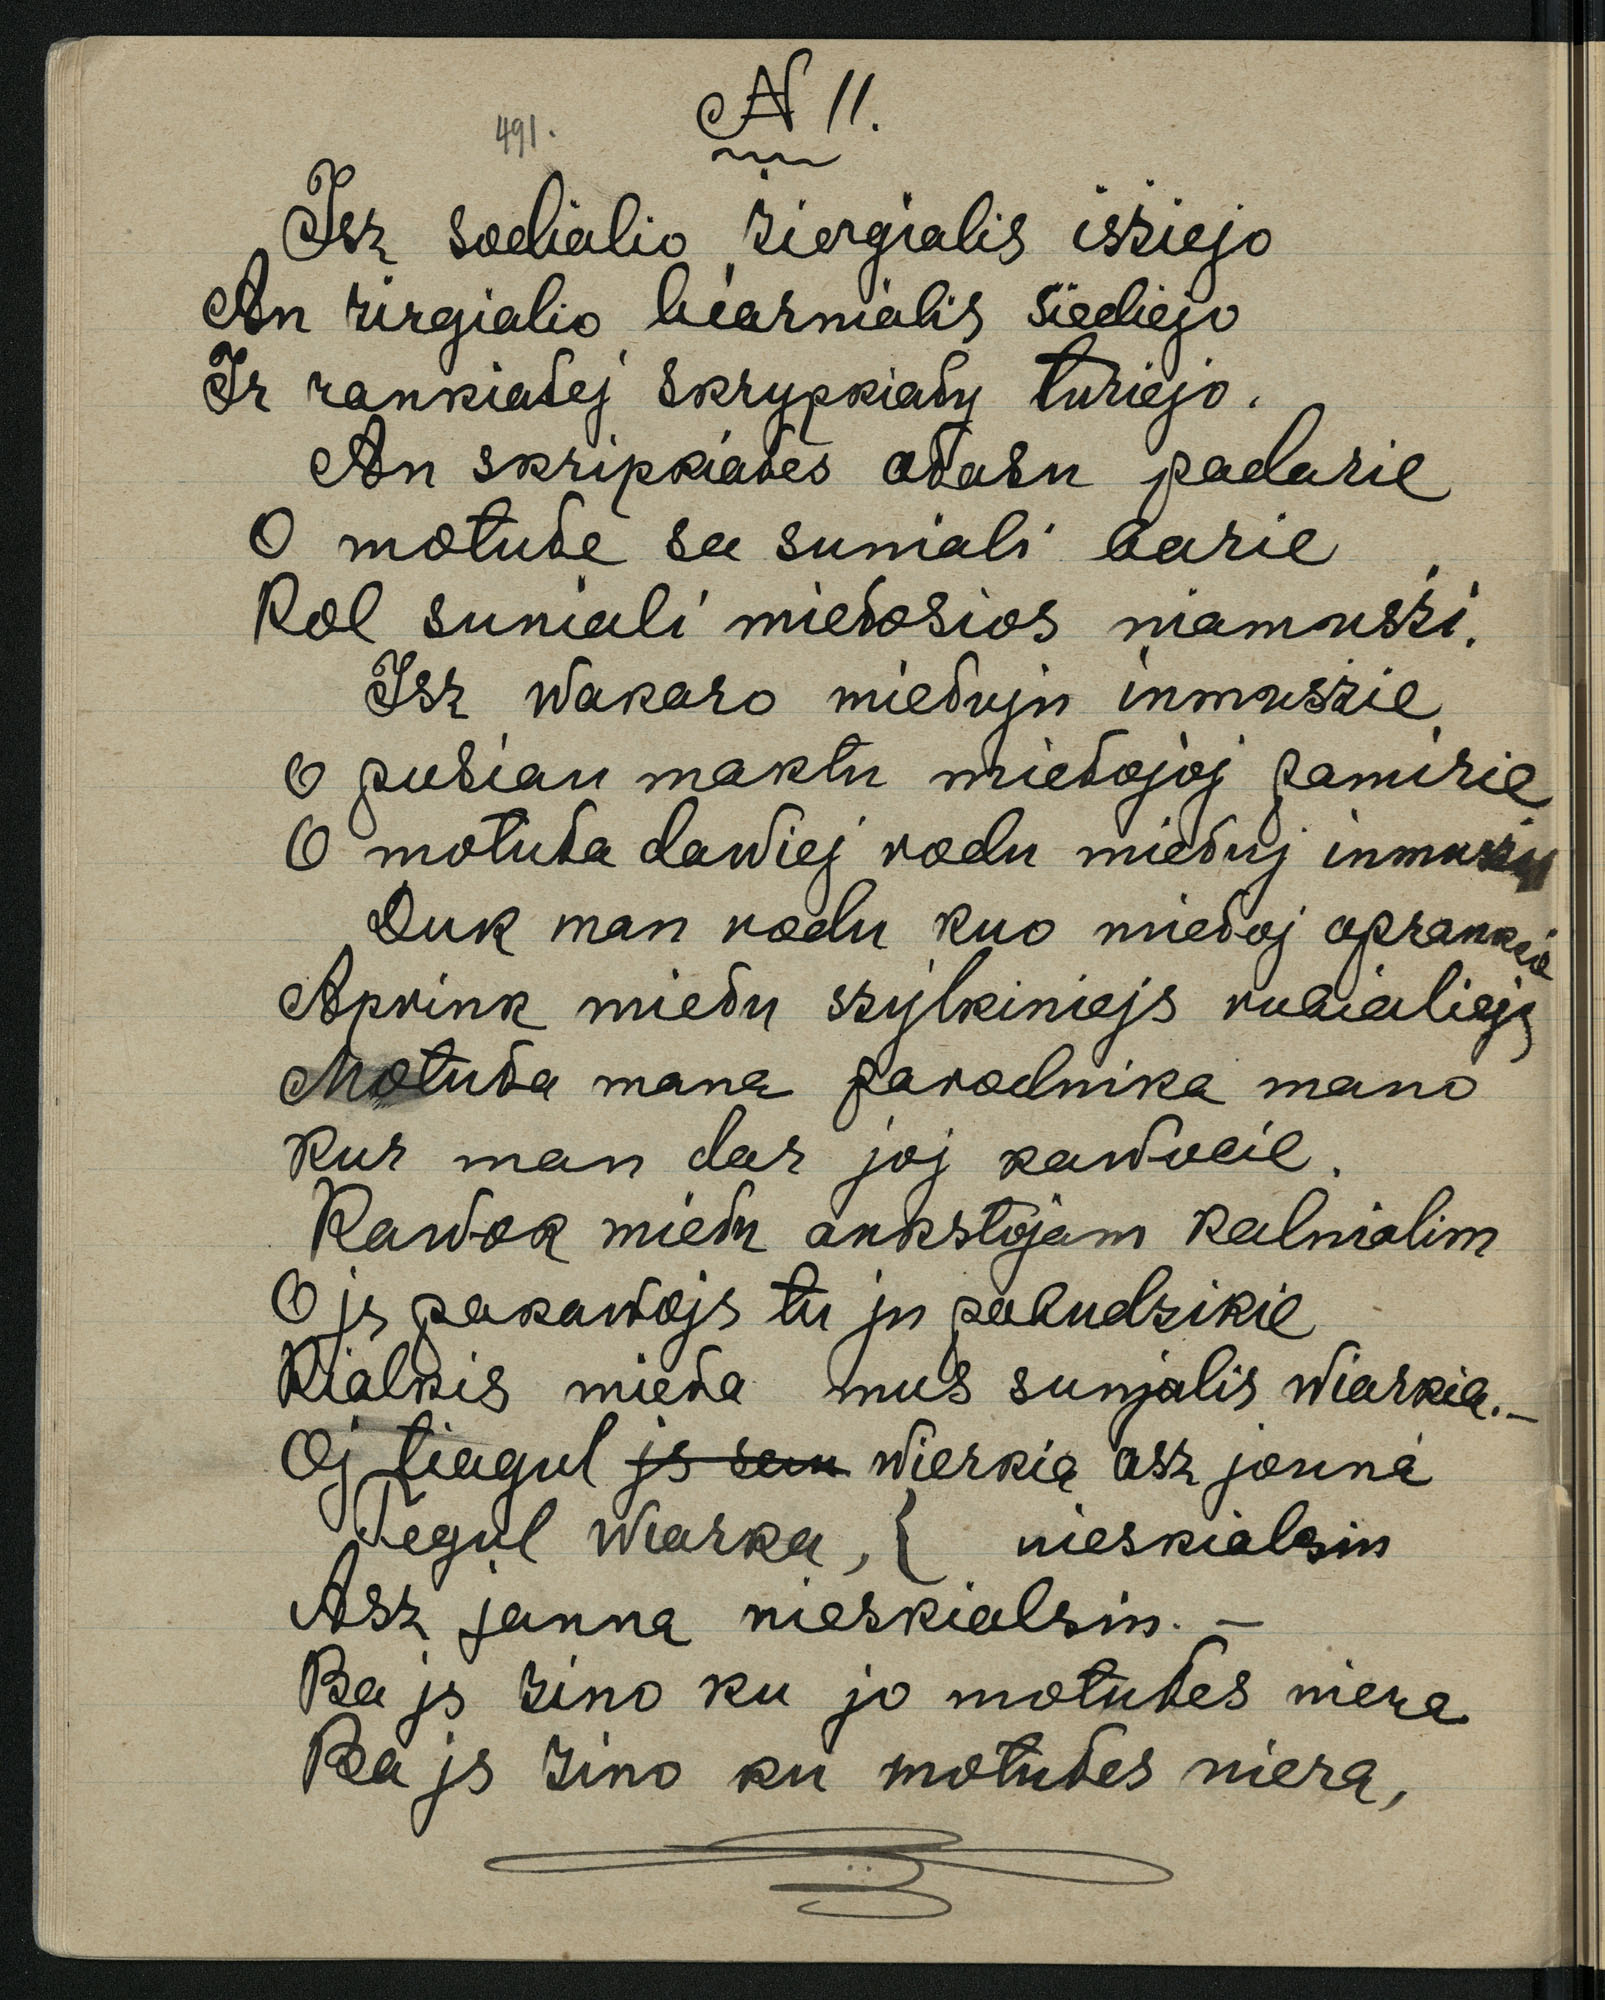 N 11.
491.
Isz sodialio żiergialis iśżiejo
An żirgialio biarnialis siediejo
Ir rankiałej skrypkiały turiejo.
An skripkiałes ałasu padarie
O motułe su suniali barie
Kol suniali miełosios niamuszi.
Isz wakaro miełuju inmuszie
O pusiau naktu miełojoj pamirie
O motuła dawiej rodu miełuj inmuszij
Duk man rodu kuo miełoj aprankie
Aprink miełu szylkiniejs rubialiejs
Motuła mana parodnika mano
Kur man dar joj kawocie.
Kawok miełu aukstojam kalnialim
O js pakawojs tu ju pabudzikie
Kialkis mieła mus sunialis wiarkia.—
Oj tiagul js sau wierkia asz jouna
Tegul wiarka, { nieskialsiu
Asz jauna nieskialsiu. —
Ba js żino ku jo motułes niera
Ba js żino ku motułes niera,